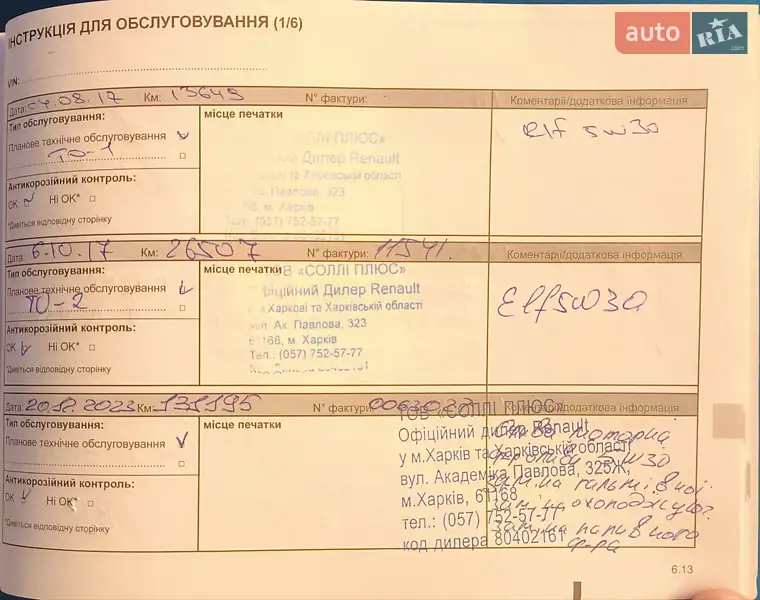 auto RIA.com
ІНСТРУКЦІЯ ДЛЯ ОБСЛУГОВУВАННЯ (1/6)
VIN:
Дата: 04.08.17 Км: 13649 N° фактури: Коментарі/додаткова інформація
Тип обслуговування:
Планове технічне обслуговування
ТО-1
Антикорозійний контроль:
OK Ні OK*
*Дивіться відповідну сторінку
місце печатки
СОЛЛІ ПЛЮС»
Дилер Renault
та Харківській області
Павлова, 323
м. Харків
Тел.: (057) 752-57-77
Elf 5W30
Дата: 6.10.17 Км: 26507 N° фактури: 11541. Коментарі/додаткова інформація
Тип обслуговування:
Планове технічне обслуговування
ТО-2
Антикорозійний контроль:
OK Ні OK*
*Дивіться відповідну сторінку
місце печатки
«СОЛЛІ ПЛЮС»
Офіційний Дилер Renault
Харкові та Харківській області
вул. Ак. Павлова, 323
м. Харків
Тел.: (057) 752-57-77
Elf 5W30
Дата: 20.12.2023 Км: 131195 N° фактури: Коментарі/додаткова інформація
Тип обслуговування:
Планове технічне обслуговування
Антикорозійний контроль:
OK Ні OK*
*Дивіться відповідну сторінку
місце печатки
ТОВ «СОЛЛІ ПЛЮС»
Офіційний дилер Renault
у м.Харків та Харківській області
вул. Академіка Павлова, 325Ж,
м.Харків, 61168
тел.: (057) 752-57-77
код дилера 80402161
моторна
5W30
заміна гальмівної
заміна паливного
ф-ра
6.13